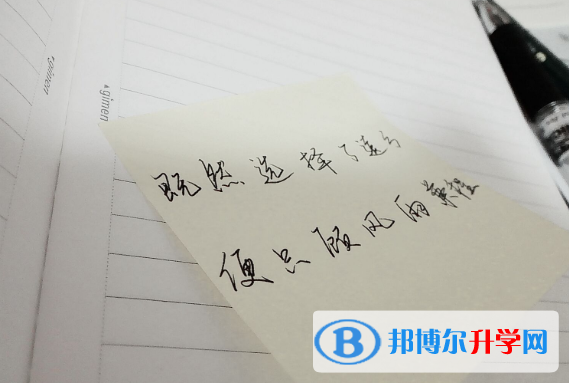 gimen
gimen
既然选择了远方
便只顾风雨兼程
B 邦博尔升学网